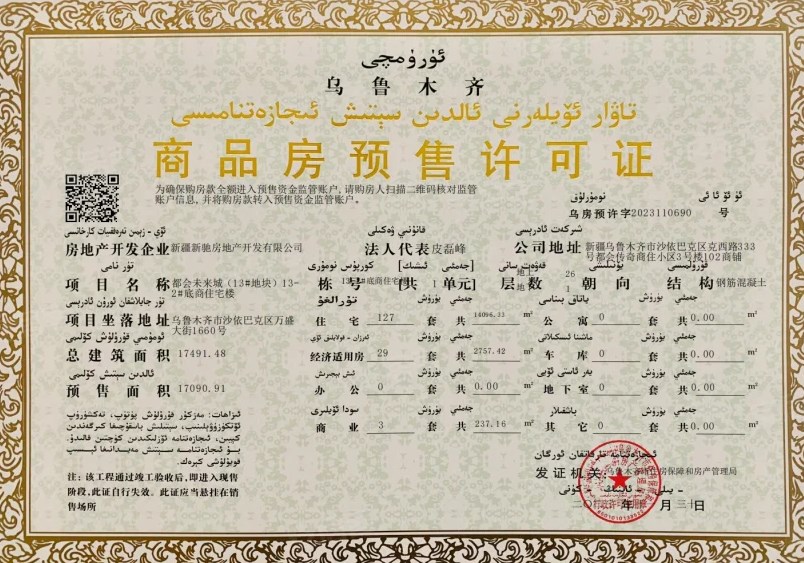 ئۈرۈمچى
乌鲁木齐
تاۋار ئۆيلەرنى ئالدىن سېتىش ئىجازەتنامىسى
商品房预售许可证
为确保购房款全额进入预售资金监管账户,请购房人扫描二维码核对监管
账户信息,并将购房款转入预售资金监管账户。
نومۇرلۇق
乌房预许字2023110690 号
ئۆي - زېمىن تەرەققىيات كارخانىسى قانۇنىي ۋەكىلى شىركەت ئادرېسى
房地产开发企业 新疆新驰房地产开发有限公司 法人代表 皮磊峰 公司地址 新疆乌鲁木齐市沙依巴克区克西路333
号都会传奇商住小区3号楼102商铺
تۈر نامى كورپۇس نومۇرى [جەمئىي ئىشىك] قەۋەت سانى يۆنىلىشى قۇرۇلمىسى
项目名称 都会未来城(13#地块)13-
2#底商住宅楼
栋号 [共 1 单元] 层数 地上 26 地 1 朝向 结构 钢筋混凝土
تۈر جايلاشقان ئورۇن ئادرېسى تۇرالغۇ جەمئىي يۈرۈش باتاق بىناسى جەمئىي يۈرۈش
项目坐落地址 乌鲁木齐市沙依巴克区万盛
大街1660号
住宅 127 套 共 14096.33 m² 公寓 0 套 共 0.00 m²
ئومۇمىي قۇرۇلۇش كۆلىمى جەمئىي يۈرۈش ماشىنا ئىسكىلاتى جەمئىي يۈرۈش
总建筑面积 17491.48 经济适用房 29 套 共 2757.42 m² 车库 0 套 共 0.00 m²
ئالدىن سېتىش كۆلىمى ئىش بېجىرىش جەمئىي يۈرۈش يەر ئاستى ئۆيى جەمئىي يۈرۈش
预售面积 17090.91 办公 0 套 共 0.00 m² 地下室 0 套 共 0.00 m²
سودا ئۆيلىرى جەمئىي يۈرۈش باشقىلار جەمئىي يۈرۈش
商业 3 套 共 237.16 m² 其它 0 套 共 0.00 m²
注:该工程通过竣工验收后,即进入现售
阶段,此证自行失效。此证应当悬挂在销
售场所
ئىجازەتنامە تارقاتقان ئورگان
发证机关: 乌鲁木齐市住房保障和房产管理局
يىلى ئاينىڭ كۈنى
二〇 年 月三十日